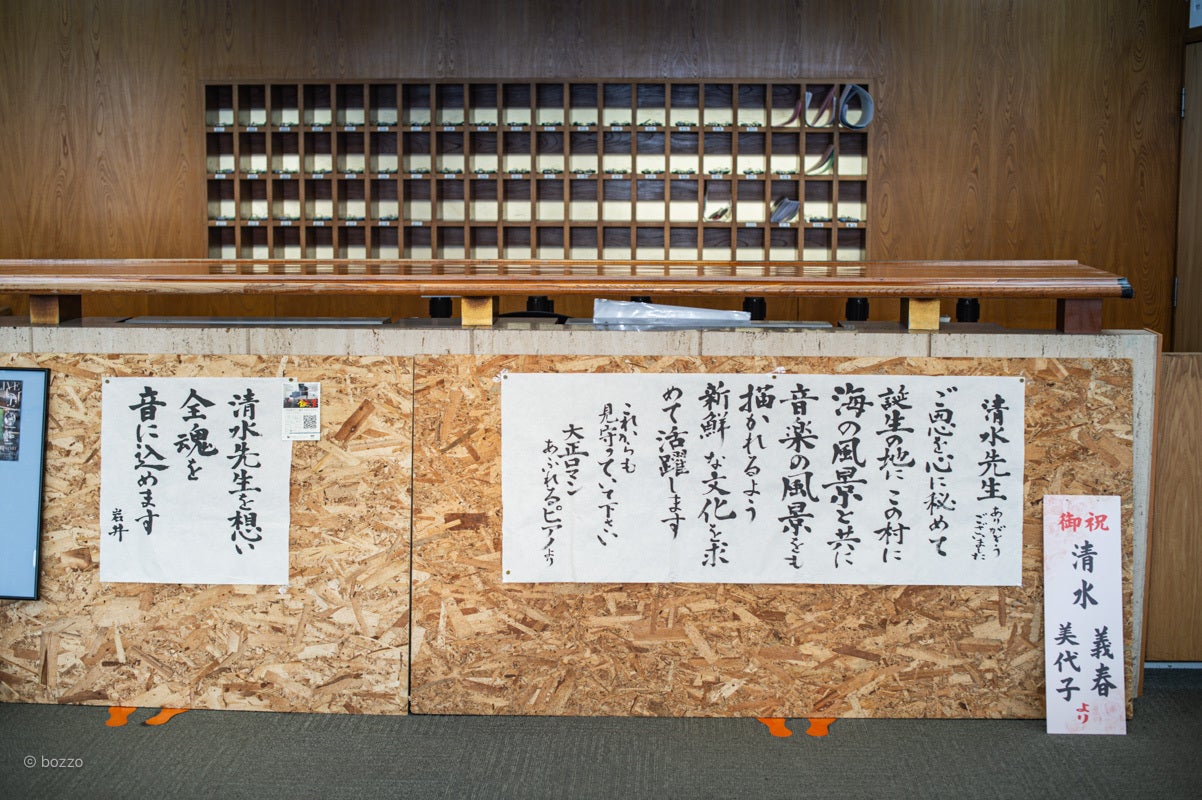 清水先生を想い
全魂を
音に込めます
岩井
清水先生 ありがとうございました
ご恩を心に秘めて
誕生の地に この村に
海の風景と共に
音楽の風景をも
描かれるよう
新鮮な文化を求
めて活躍します
これからも
見守っていて下さい
大正ロマン
あふれるピアノより
御祝
清水
義春
美代子
より
© bozzo